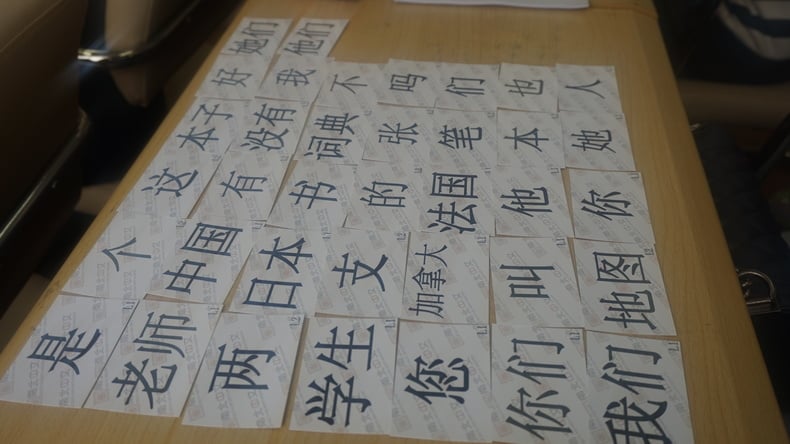 她们 他们
好 我 不 吗 们 也 人
本子 没有 词典 张 笔 本 她
这 有 书 的 法国 他 你
个 中国 日本 支 加拿大 叫 地图
是 老师 两 学生 您 你们 我们